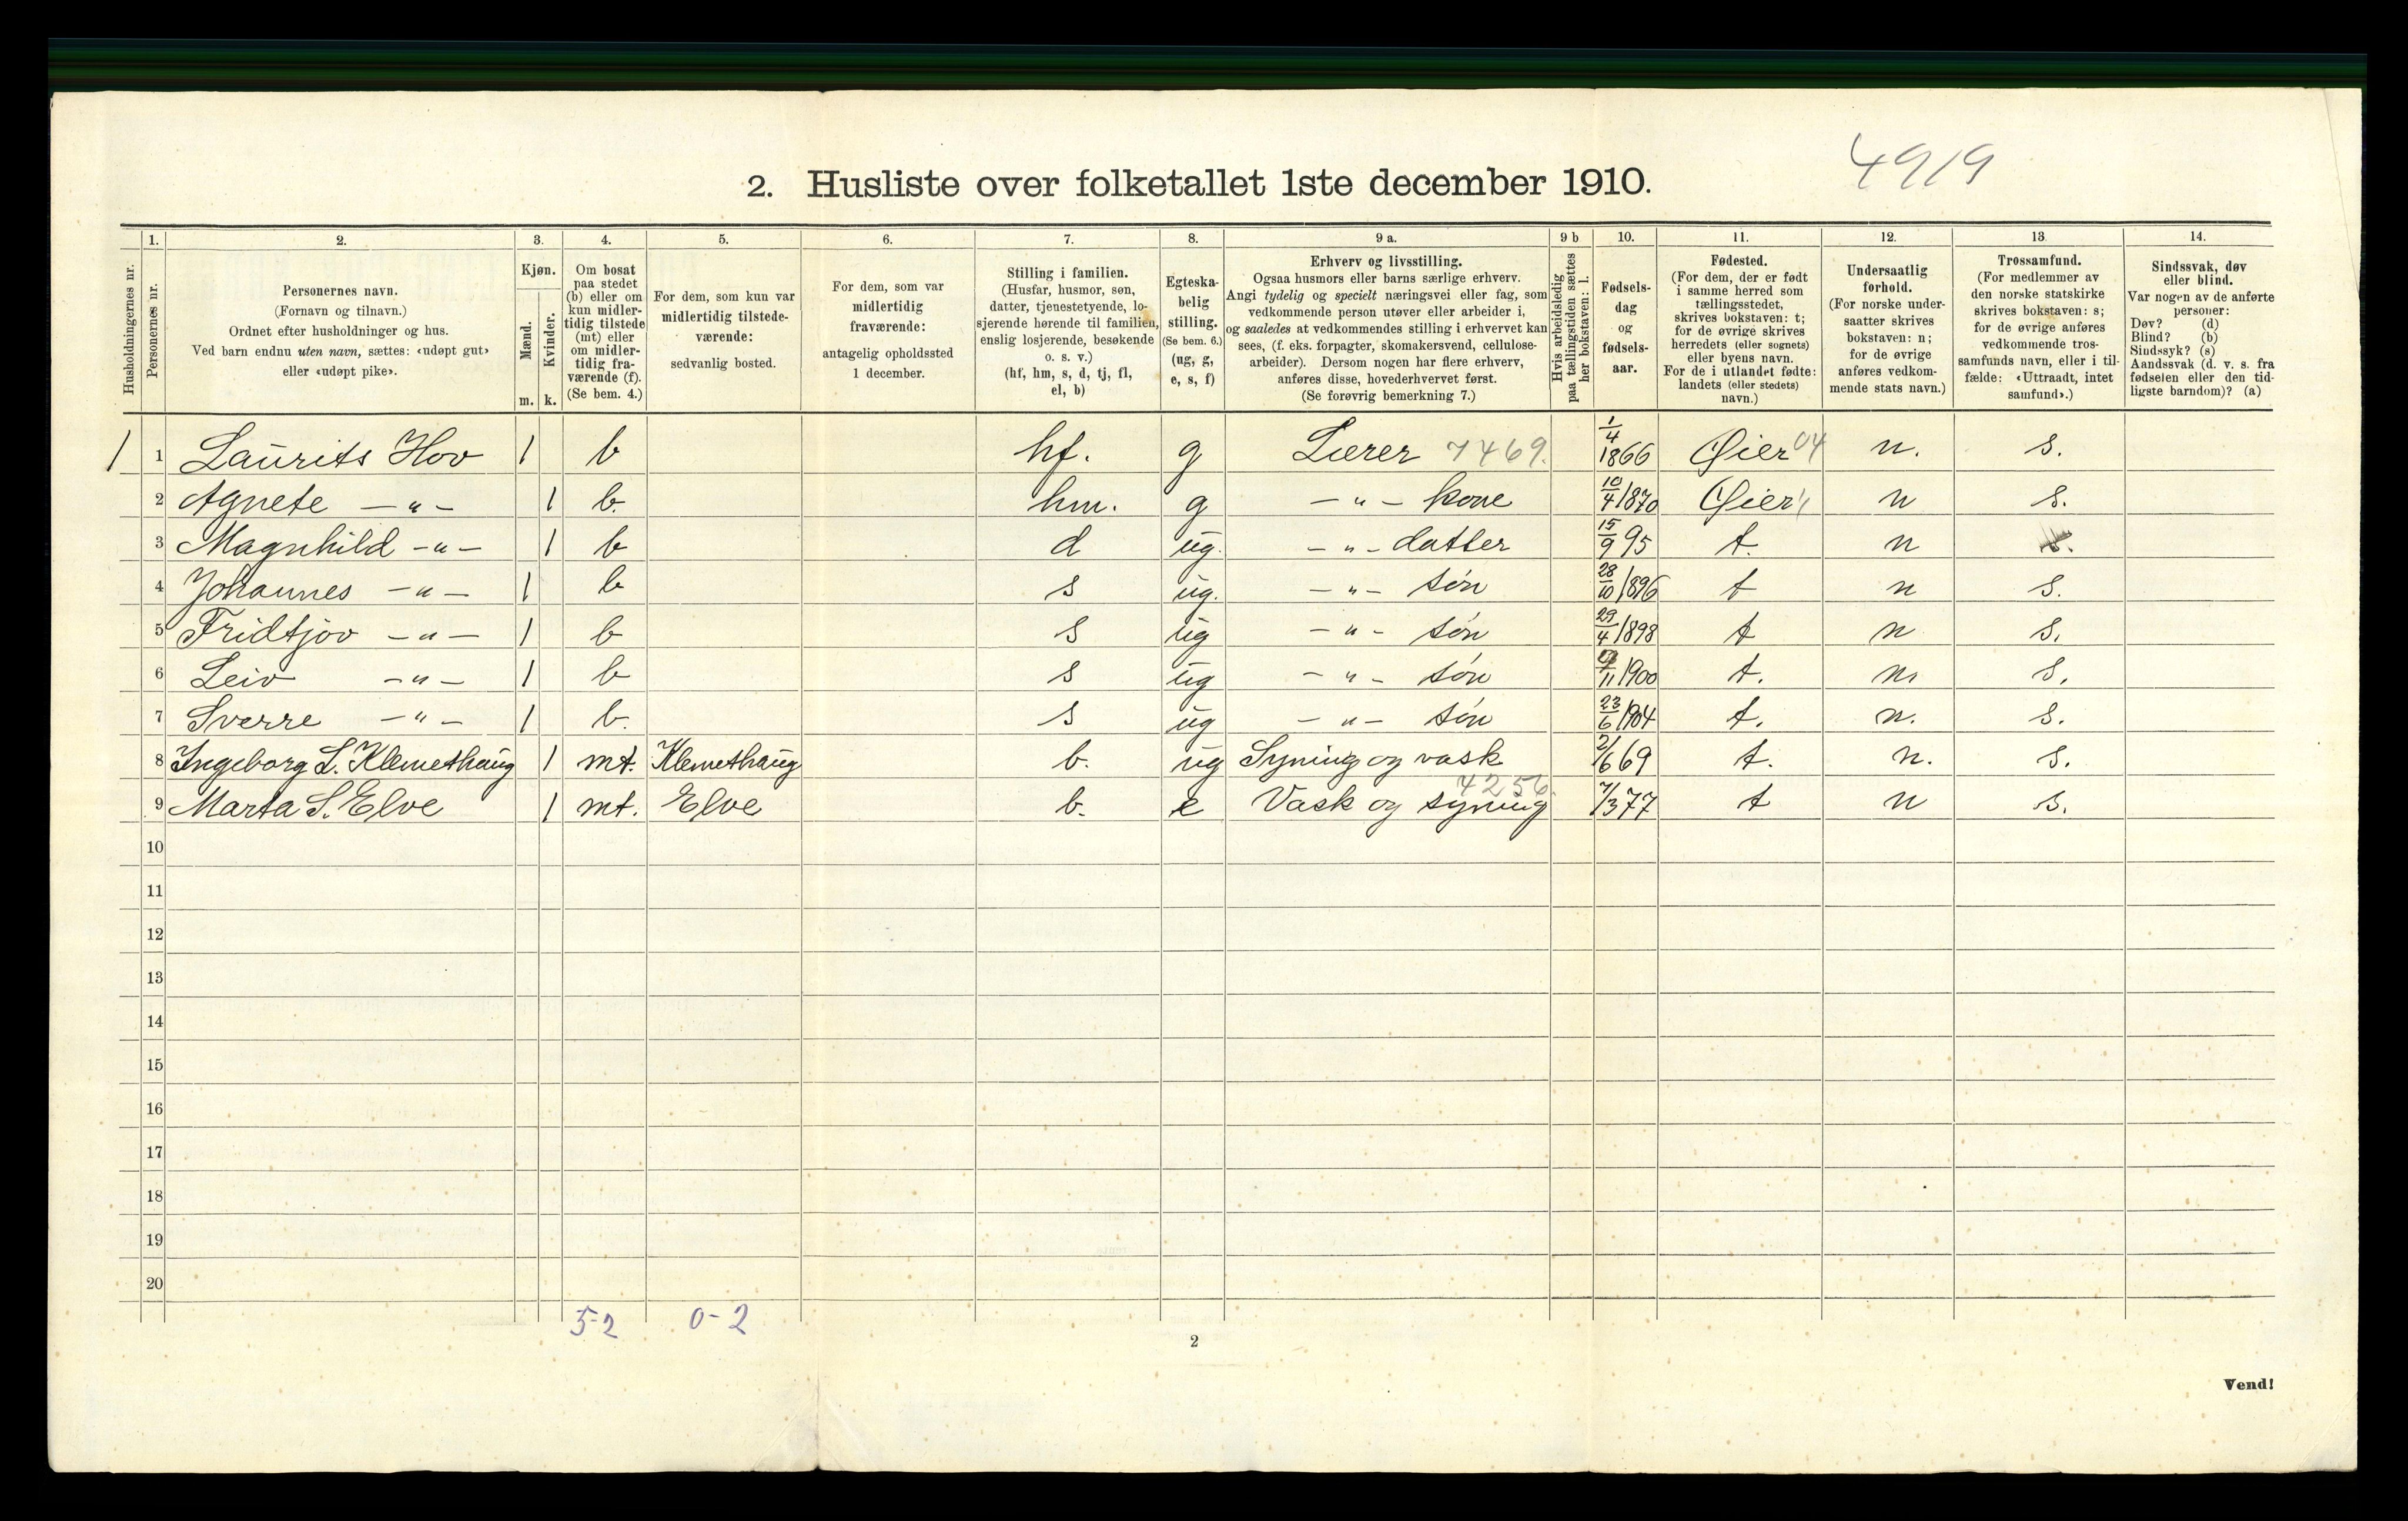 4919
2. Husliste over folketallet 1ste december 1910.
Husholdningernes nr.
1. Personernes nr.
2. Personernes navn.
(Fornavn og tilnavn.)
Ordnet efter husholdninger og hus.
Ved barn endnu uten navn, sættes: «udøpt gut»
eller «udøpt pike».
3. Kjøn.
Mænd. m.
Kvinder. k.
4. Om bosat
paa stedet
(b) eller om
kun midler-
tidig tilstede
(mt) eller
om midler-
tidig fra-
værende (f).
(Se bem. 4.)
5. For dem, som kun var
midlertidig tilstede-
værende:
sedvanlig bosted.
6. For dem, som var
midlertidig
fraværende:
antagelig opholdssted
1 december.
7. Stilling i familien.
(Husfar, husmor, søn,
datter, tjenestetyende, lo-
sjerende hørende til familien,
enslig losjerende, besøkende
o. s. v.)
(hf, hm, s, d, tj, fl,
el, b)
8. Egteska-
belig
stilling.
(Se bem. 6.)
(ug, g,
e, s, f)
9 a. Erhverv og livsstilling.
Ogsaa husmors eller barns særlige erhverv.
Angi tydelig og specielt næringsvei eller fag, som
vedkommende person utøver eller arbeider i,
og saaledes at vedkommendes stilling i erhvervet kan
sees, (f. eks. forpagter, skomakersvend, cellulose-
arbeider). Dersom nogen har flere erhverv,
anføres disse, hovederhvervet først.
(Se forøvrig bemerkning 7.)
9 b Hvis arbeidsledig
paa tællingstiden sættes
her bokstaven: l.
10. Fødsels-
dag
og
fødsels-
aar.
11. Fødested.
(For dem, der er født
i samme herred som
tællingsstedet,
skrives bokstaven: t;
for de øvrige skrives
herredets (eller sognets)
eller byens navn.
For de i utlandet fødte:
landets (eller stedets)
navn.)
12. Undersaatlig
forhold.
(For norske under-
saatter skrives
bokstaven: n;
for de øvrige
anføres vedkom-
mende stats navn.)
13. Trossamfund.
(For medlemmer av
den norske statskirke
skrives bokstaven: s;
for de øvrige anføres
vedkommende tros-
samfunds navn, eller i til-
fælde: «Uttraadt, intet
samfund».)
14. Sindssvak, døv
eller blind.
Var nogen av de anførte
personer:
Døv? (d)
Blind? (b)
Sindssyk? (s)
Aandssvak (d. v. s. fra
fødselen eller den tid-
ligste barndom)? (a)
1 1 Laurits Hov 1 b hf. g Lærer 7469. 1/4 1866 Øier 04 n. s.
2 Agnete —"— 1 b. hm. g —"— kone 10/4 1870 Øier n s.
3 Magnhild —"— 1 b d ug. —"— datter 15/9 95 t. n s.
4 Johannes —"— 1 b s ug. —"— søn 28/10 1896 t n s.
5 Fridtjov —"— 1 b s ug —"— søn 29/4 1898 t n s.
6 Leiv —"— 1 b s ug —"— søn /11 1900 t. n. s.
7 Sverre —"— 1 b. s ug —"— søn 23/6 1904 t. n. s.
8 Ingeborg L. Klemethaug 1 mt. Klemethaug b. ug Syning og vask 2/6 69 t. n. s.
9 Marta S. Elve 1 mt. Elve b. e Vask og syning 4256. 7/3 77 t n s.
10
11
12
13
14
15
16
17
18
19
20
5-2 0-2
2
Vend!